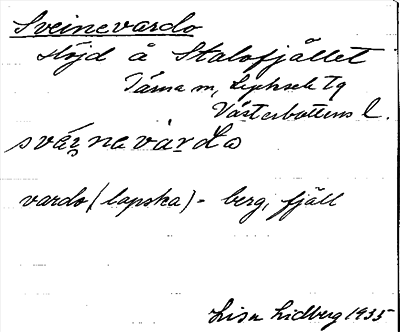 Sveinevardo
Höjd å Stalofjället
Tärna sn, Lycksele Tg
Västerbottens l.
svái̯navárdo
vardo (lapska) = berg, fjäll
Lisa Lidberg 1935